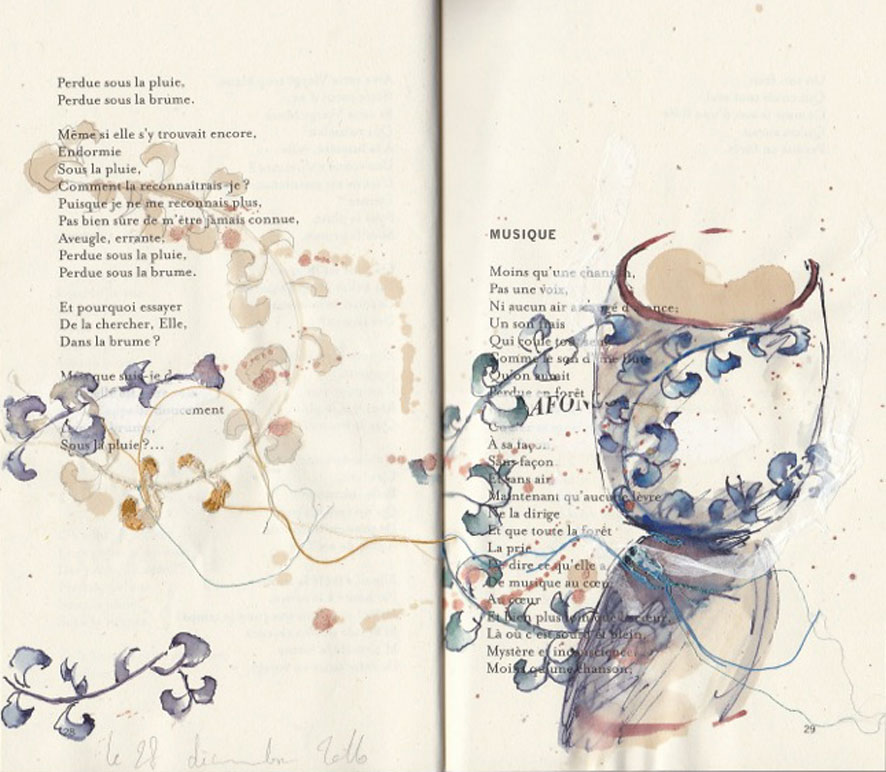 Perdue sous la pluie,
Perdue sous la brume.
Même si elle s'y trouvait encore,
Endormie
Sous la pluie,
Comment la reconnaîtrais-je ?
Puisque je ne me reconnais plus,
Pas bien sûre de m'être jamais connue,
Aveugle, errante,
Perdue sous la pluie,
Perdue sous la brume.
Et pourquoi essayer
De la chercher, Elle,
Dans la brume ?
suis-je
cement
Sous la pluie ?...
28
le 28
MUSIQUE
Moins qu'une chanson,
Pas une voix,
Ni aucun air
Un son frais
Qui coule
Comme le son d'une flûte
Qu'on aurait
Perdue en forêt
AFON
À sa façon,
Sans façon
Et sans air
Maintenant qu'aucune lèvre
Ne la dirige
Et que toute la forêt
La prie
De dire ce qu'elle a
De musique au cœur
Au cœur
Et bien plus loin que le cœur,
Là où c'est sourd et plein,
Mystère et
Moins qu'une chanson,
29